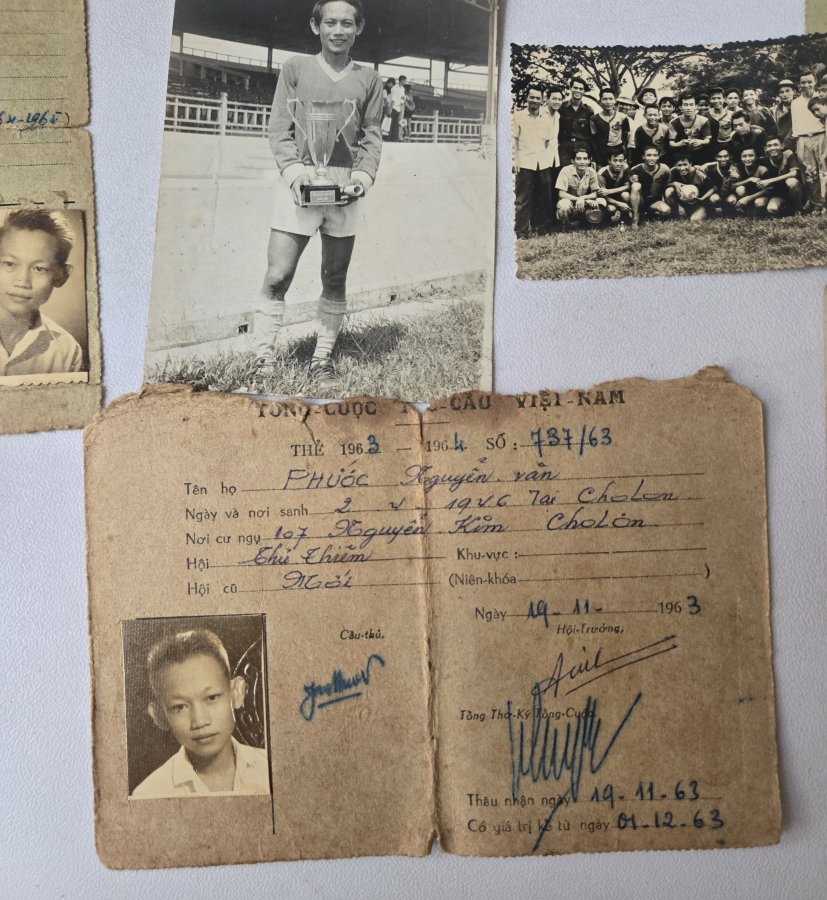 1965
TỔNG-CUỘC TÚC-CẦU VIỆT-NAM
THẺ 1963 — 1964 SỐ : 737/63
Tên họ PHƯỚC Nguyễn văn
Ngày và nơi sanh 2 4 1946 Tại CHOLON
Nơi cư ngụ 107 Nguyễn Kim CHOLON
Hội Thủ Thiêm Khu-vực :
Hội cũ Mới (Niên-khóa )
Ngày 19-11- 1963
Cầu-thủ, Hội-Trưởng,
Tổng Thơ-Ký Tổng-Cuộc
Thâu nhận ngày 19-11-63
Có giá trị kể từ ngày 01-12-63